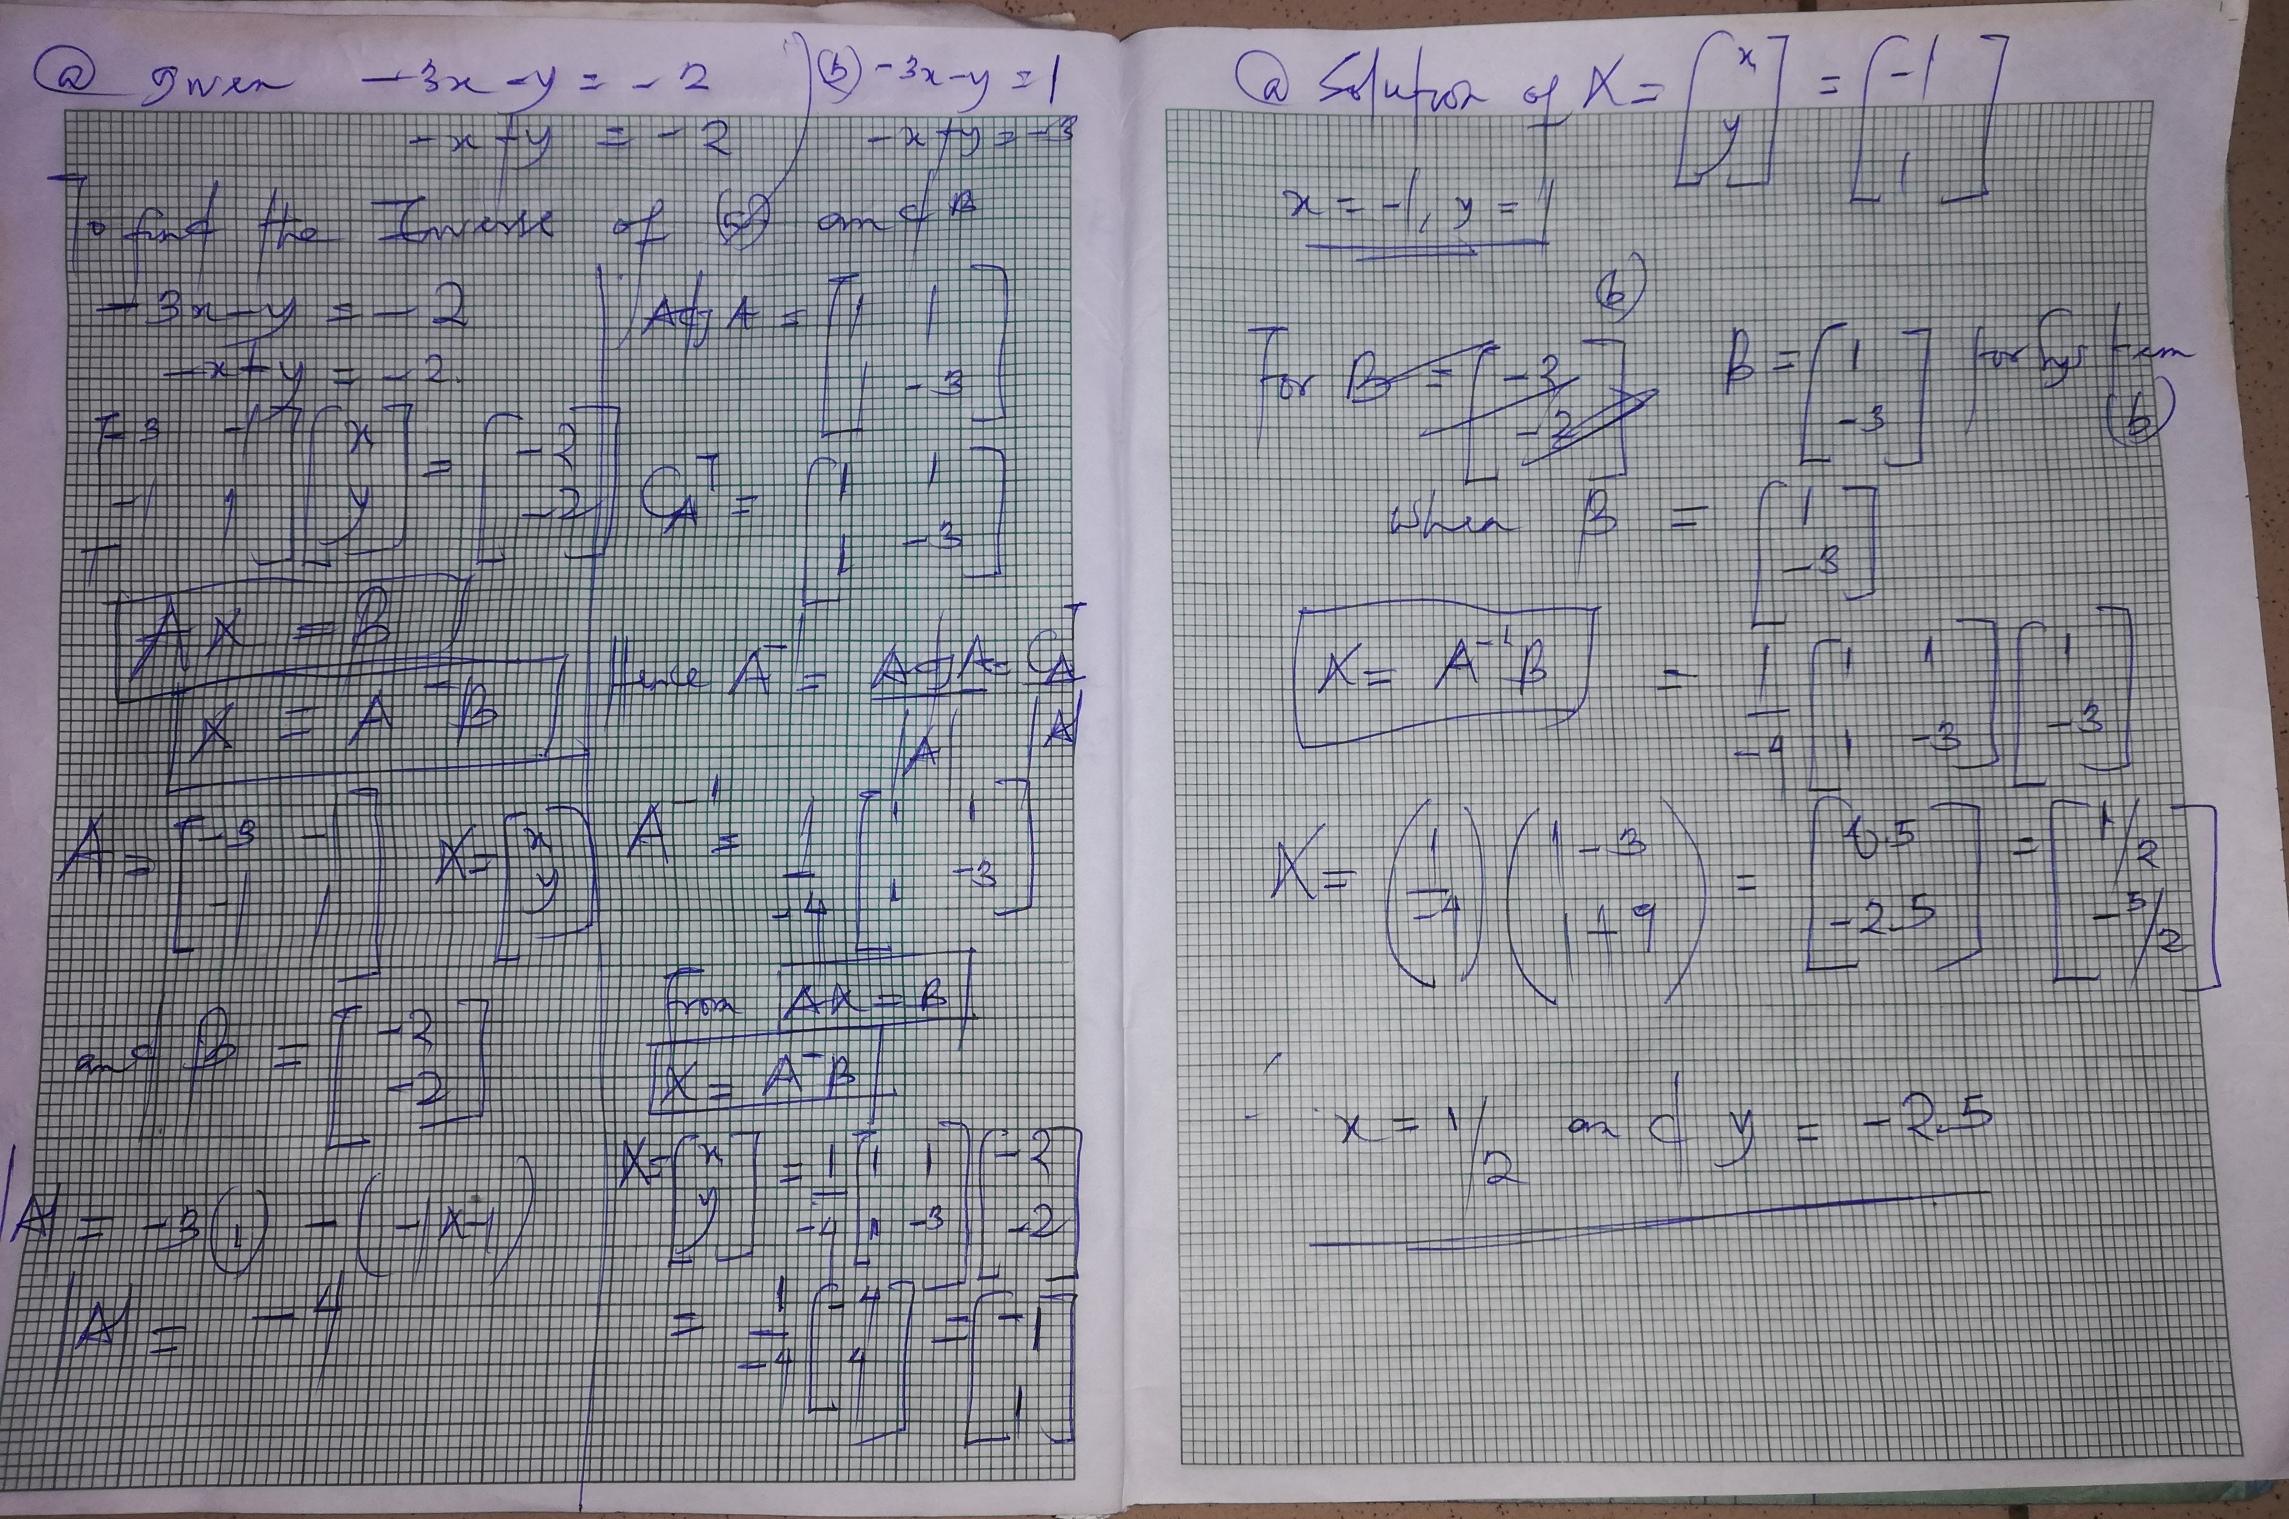 (a) Given -3x - y = -2
-x + y = -2
(b) -3x - y = 1
-x + y = -3
To find the Inverse of (a) and B
-3x - y = -2
-x + y = -2.
[-3 -1; -1 1] [x; y] = [-2; -2]
AX = B
X = A⁻B
A = [-3 -1; -1 1] X = [x; y]
and B = [-2; -2]
|A| = -3(1) - (-1x-1)
|A| = -4
Adj A = [1 1; 1 -3]
C_A^T = [1 1; 1 -3]
Hence A⁻¹ = Adj A / |A| = C_A^T / |A|
A⁻¹ = 1/-4 [1 1; 1 -3]
from AX = B
X = A⁻B
X = [x; y] = 1/-4 [1 1; 1 -3] [-2; -2]
= 1/-4 [-4; 4] = [-1; 1]
(a) Solution of X = [x; y] = [-1; 1]
x = -1, y = 1
(b)
For B = [-2; -2] B = [1; -3] for system (b)
when B = [1; -3]
X = A⁻¹B = 1/-4 [1 1; 1 -3] [1; -3]
X = (1/-4) (1 - 3; 1 + 9) = [0.5; -2.5] = [1/2; -5/2]
∴ x = 1/2 and y = -2.5